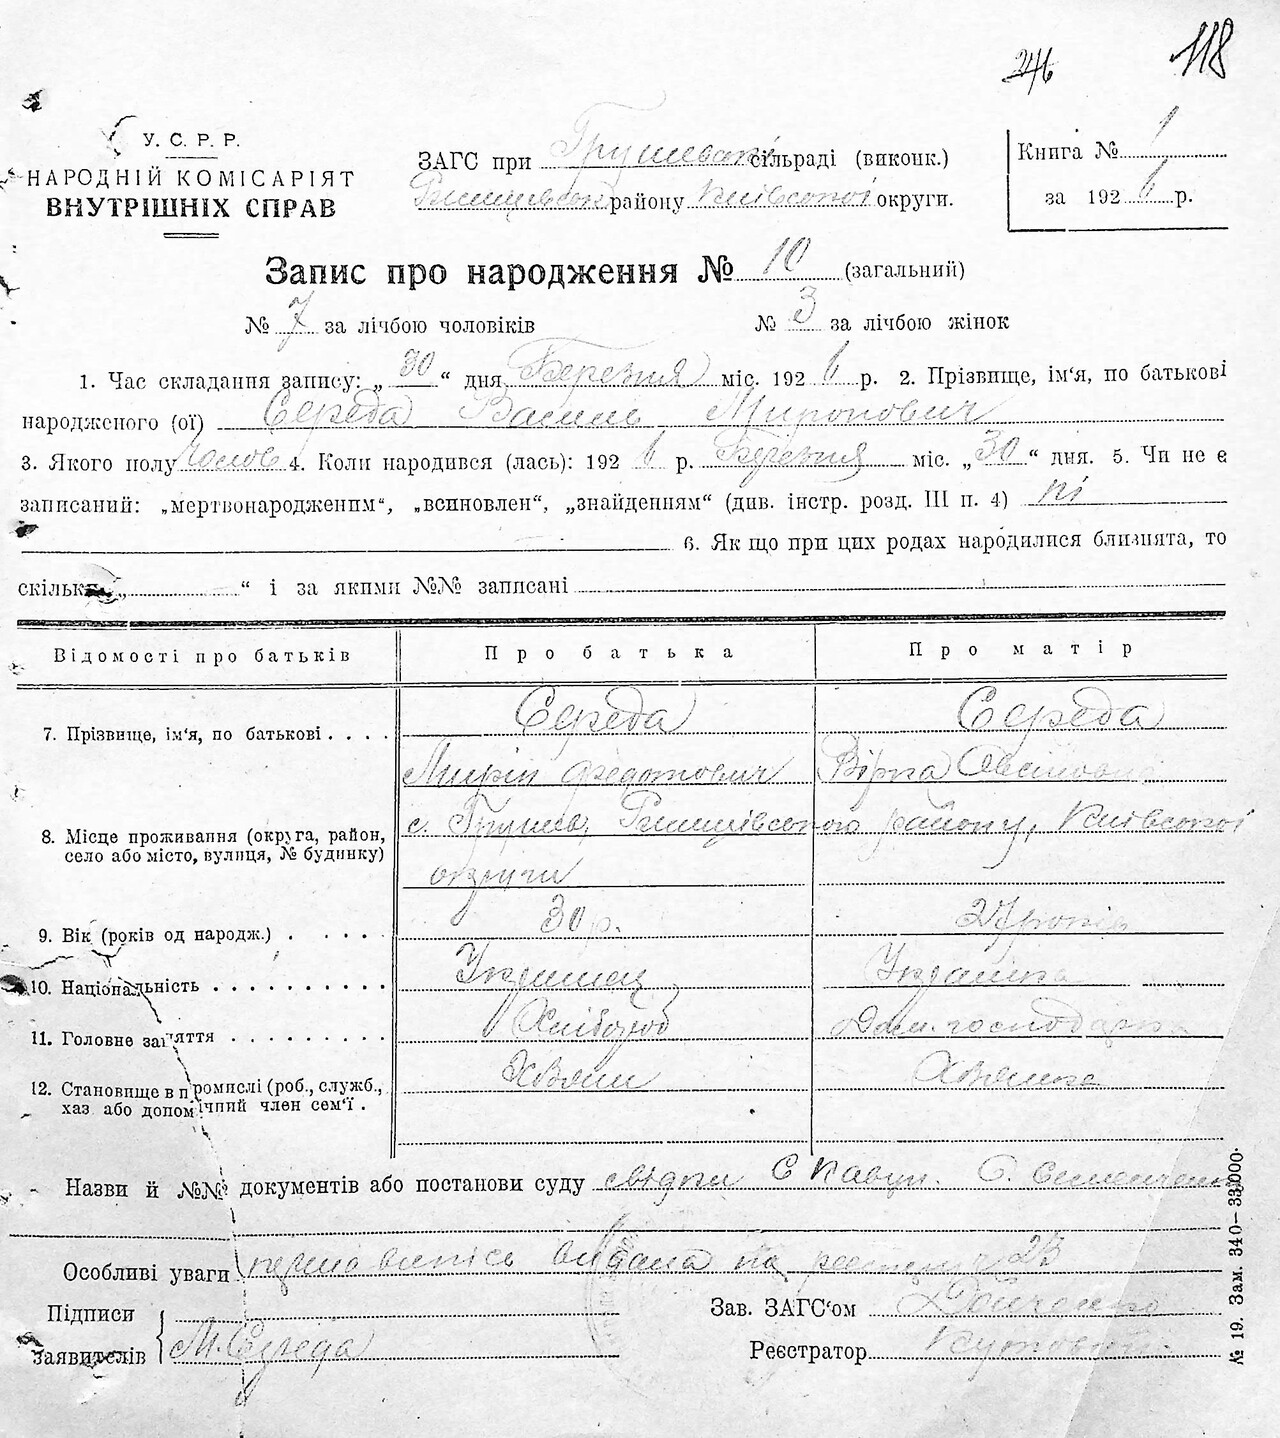 118
246
У. С. Р. Р.
НАРОДНІЙ КОМІСАРІЯТ
ВНУТРІШНІХ СПРАВ
ЗАГС при Грушевській сільраді (виконк.)
району Київської округи.
Книга № 1
за 1926 р.
Запис про народження № 10 (загальний)
№ 7 за лічбою чоловіків № 3 за лічбою жінок
1. Час складання запису: „30“ дня Березня міс. 1926 р. 2. Прізвище, ім'я, по батькові
народженого (ої) Середа Василь Миронович
3. Якого полу чолов 4. Коли народився (лась): 1926 р. Березня міс. „30“ дня. 5. Чи не є
записаний: „мертвонародженим“, „всиновлен“, „знайденням“ (див. інстр. розд. III п. 4) ні
6. Як що при цих родах народилися близнята, то
скільки „ “ і за якими №№ записані
Відомості про батьків Про батька Про матір
7. Прізвище, ім'я, по батькові . . . . Середа Середа
Мирін Федотович Вірка
8. Місце проживання (округа, район,
село або місто, вулиця, № будинку)
с. Грушів, району, Київської
округи
9. Вік (років од народж.) . . . . . 30 р. 27 років
10. Національність . . . . . . . . . . Українец Українка
11. Головне заняття . . . . . . . . . Хлібороб Дом. господарка
12. Становище в промислі (роб., служб.,
хаз або допомічний член сем'ї . Хозяин Хозяйка
Назви й №№ документів або постанови суду свідки
Особливі уваги видана на 23
Підписи
заявителів М. Середа
Зав. ЗАГС'ом
Реєстратор
№ 19. Зам. 340—33.000.